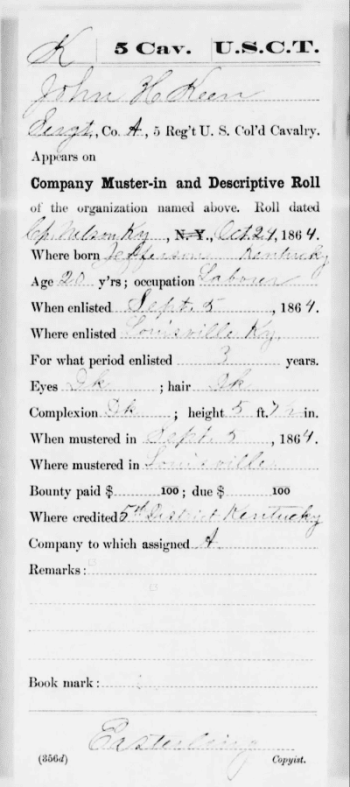 K | 5 Cav. | U.S.C.T.
John H Keen
Sergt, Co. A, 5 Reg't U. S. Col'd Cavalry.
Appears on
Company Muster-in and Descriptive Roll
of the organization named above. Roll dated
Cp. Nelson Ky, N.Y., Oct. 24, 1864.
Where born Jefferson Kentucky
Age 20 y'rs; occupation Laborer
When enlisted Sept. 5, 1864.
Where enlisted Louisville Ky.
For what period enlisted 3 years.
Eyes Dk ; hair Dk
Complexion Dk ; height 5 ft. 7½ in.
When mustered in Sept. 5, 1864.
Where mustered in Louisville
Bounty paid $ 100; due $ 100
Where credited 5th District Kentucky
Company to which assigned A
Remarks:
Book mark:
(356d) Copyist.